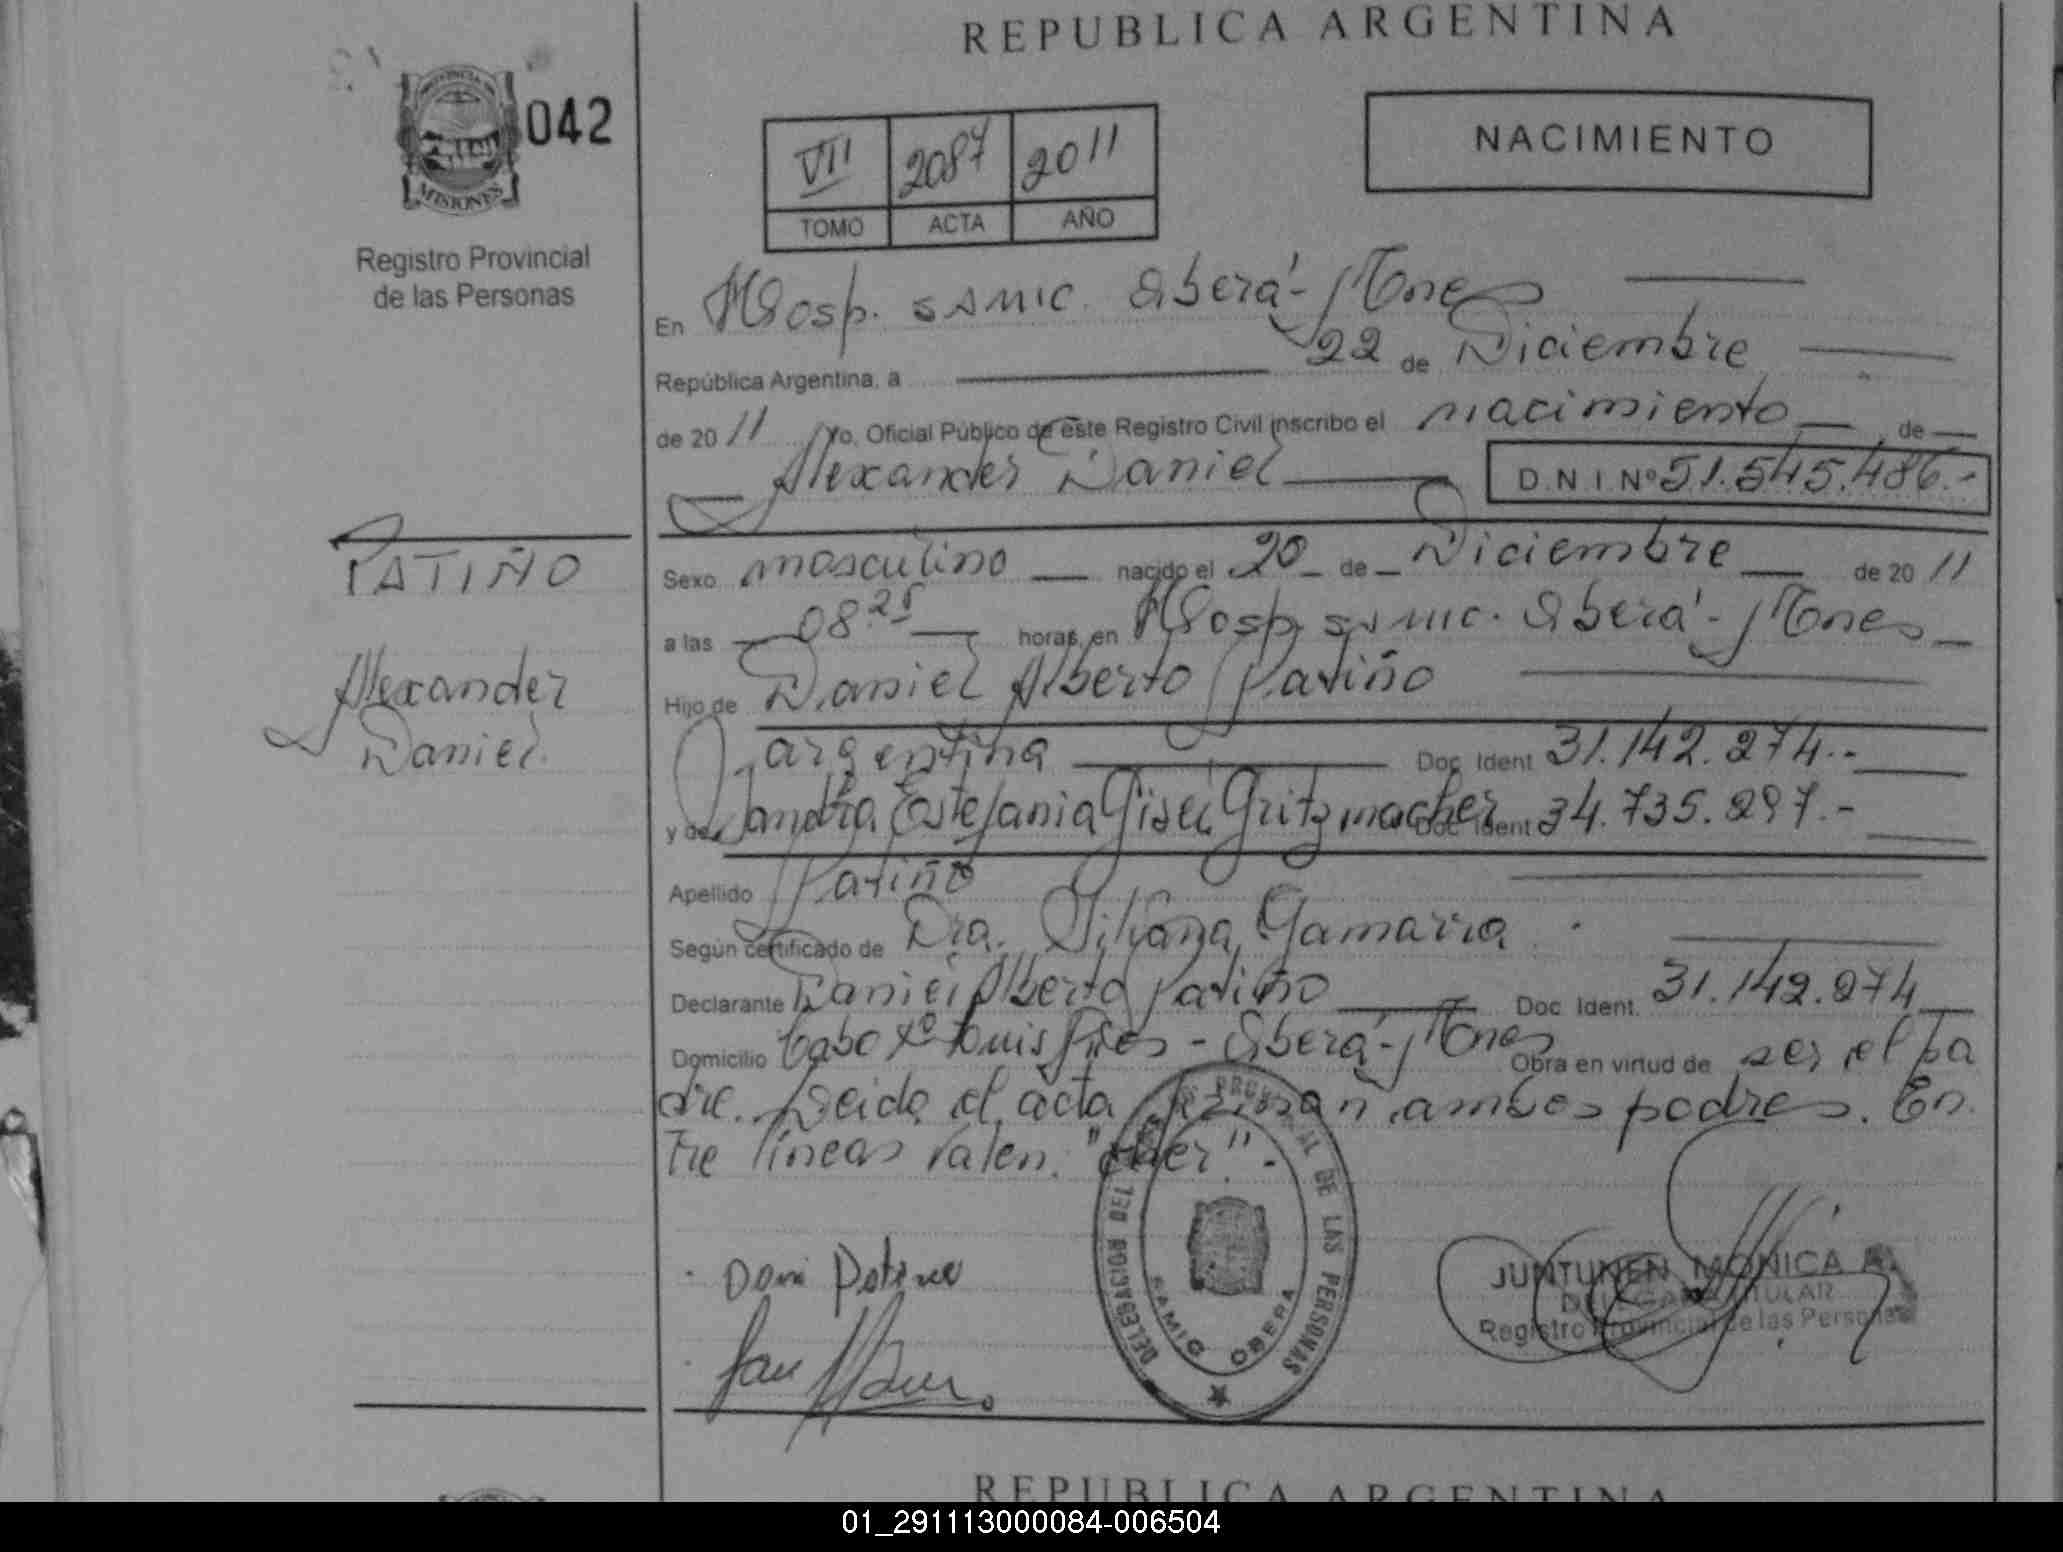 REPUBLICA ARGENTINA
PROVINCIA DE
MISIONES
042
Registro Provincial
de las Personas
VII 2087 2011
TOMO ACTA AÑO
NACIMIENTO
En Hosp. SAMIC. Oberá - Mnes
República Argentina, a 22 de Diciembre
de 2011 Yo, Oficial Público de este Registro Civil inscribo el nacimiento de
Alexander Daniel D.N.I. Nº 51.545.486.-
PATIÑO
Alexander
Daniel.
Sexo masculino nacido el 20 de Diciembre de 2011
a las 08.25 horas, en Hosp. SAMIC. Oberá - Mnes
Hijo de Daniel Alberto Patiño
argentina Doc Ident 31.142.274.-
y de Sandra Estefania Gisel Gritzmacher Doc Ident 34.735.297.-
Apellido Patiño
Según certificado de Dra. Liliana Gamarra
Declarante Daniel Alberto Patiño Doc Ident. 31.142.274
Domicilio Cabo 1º Luis - Oberá - Mnes Obra en virtud de ser el pa
dre. Leida el acta firman ambos padres. En
tre líneas valen. "cher".-
Dani Patiño
DELEGACION DEL REGISTRO PROVINCIAL DE LAS PERSONAS
SAMIC OBERA
JUNTUNEN MONICA
DELEGADA TITULAR
Registro Provincial de las Personas
REPUBLICA ARGENTINA
01_291113000084-006504